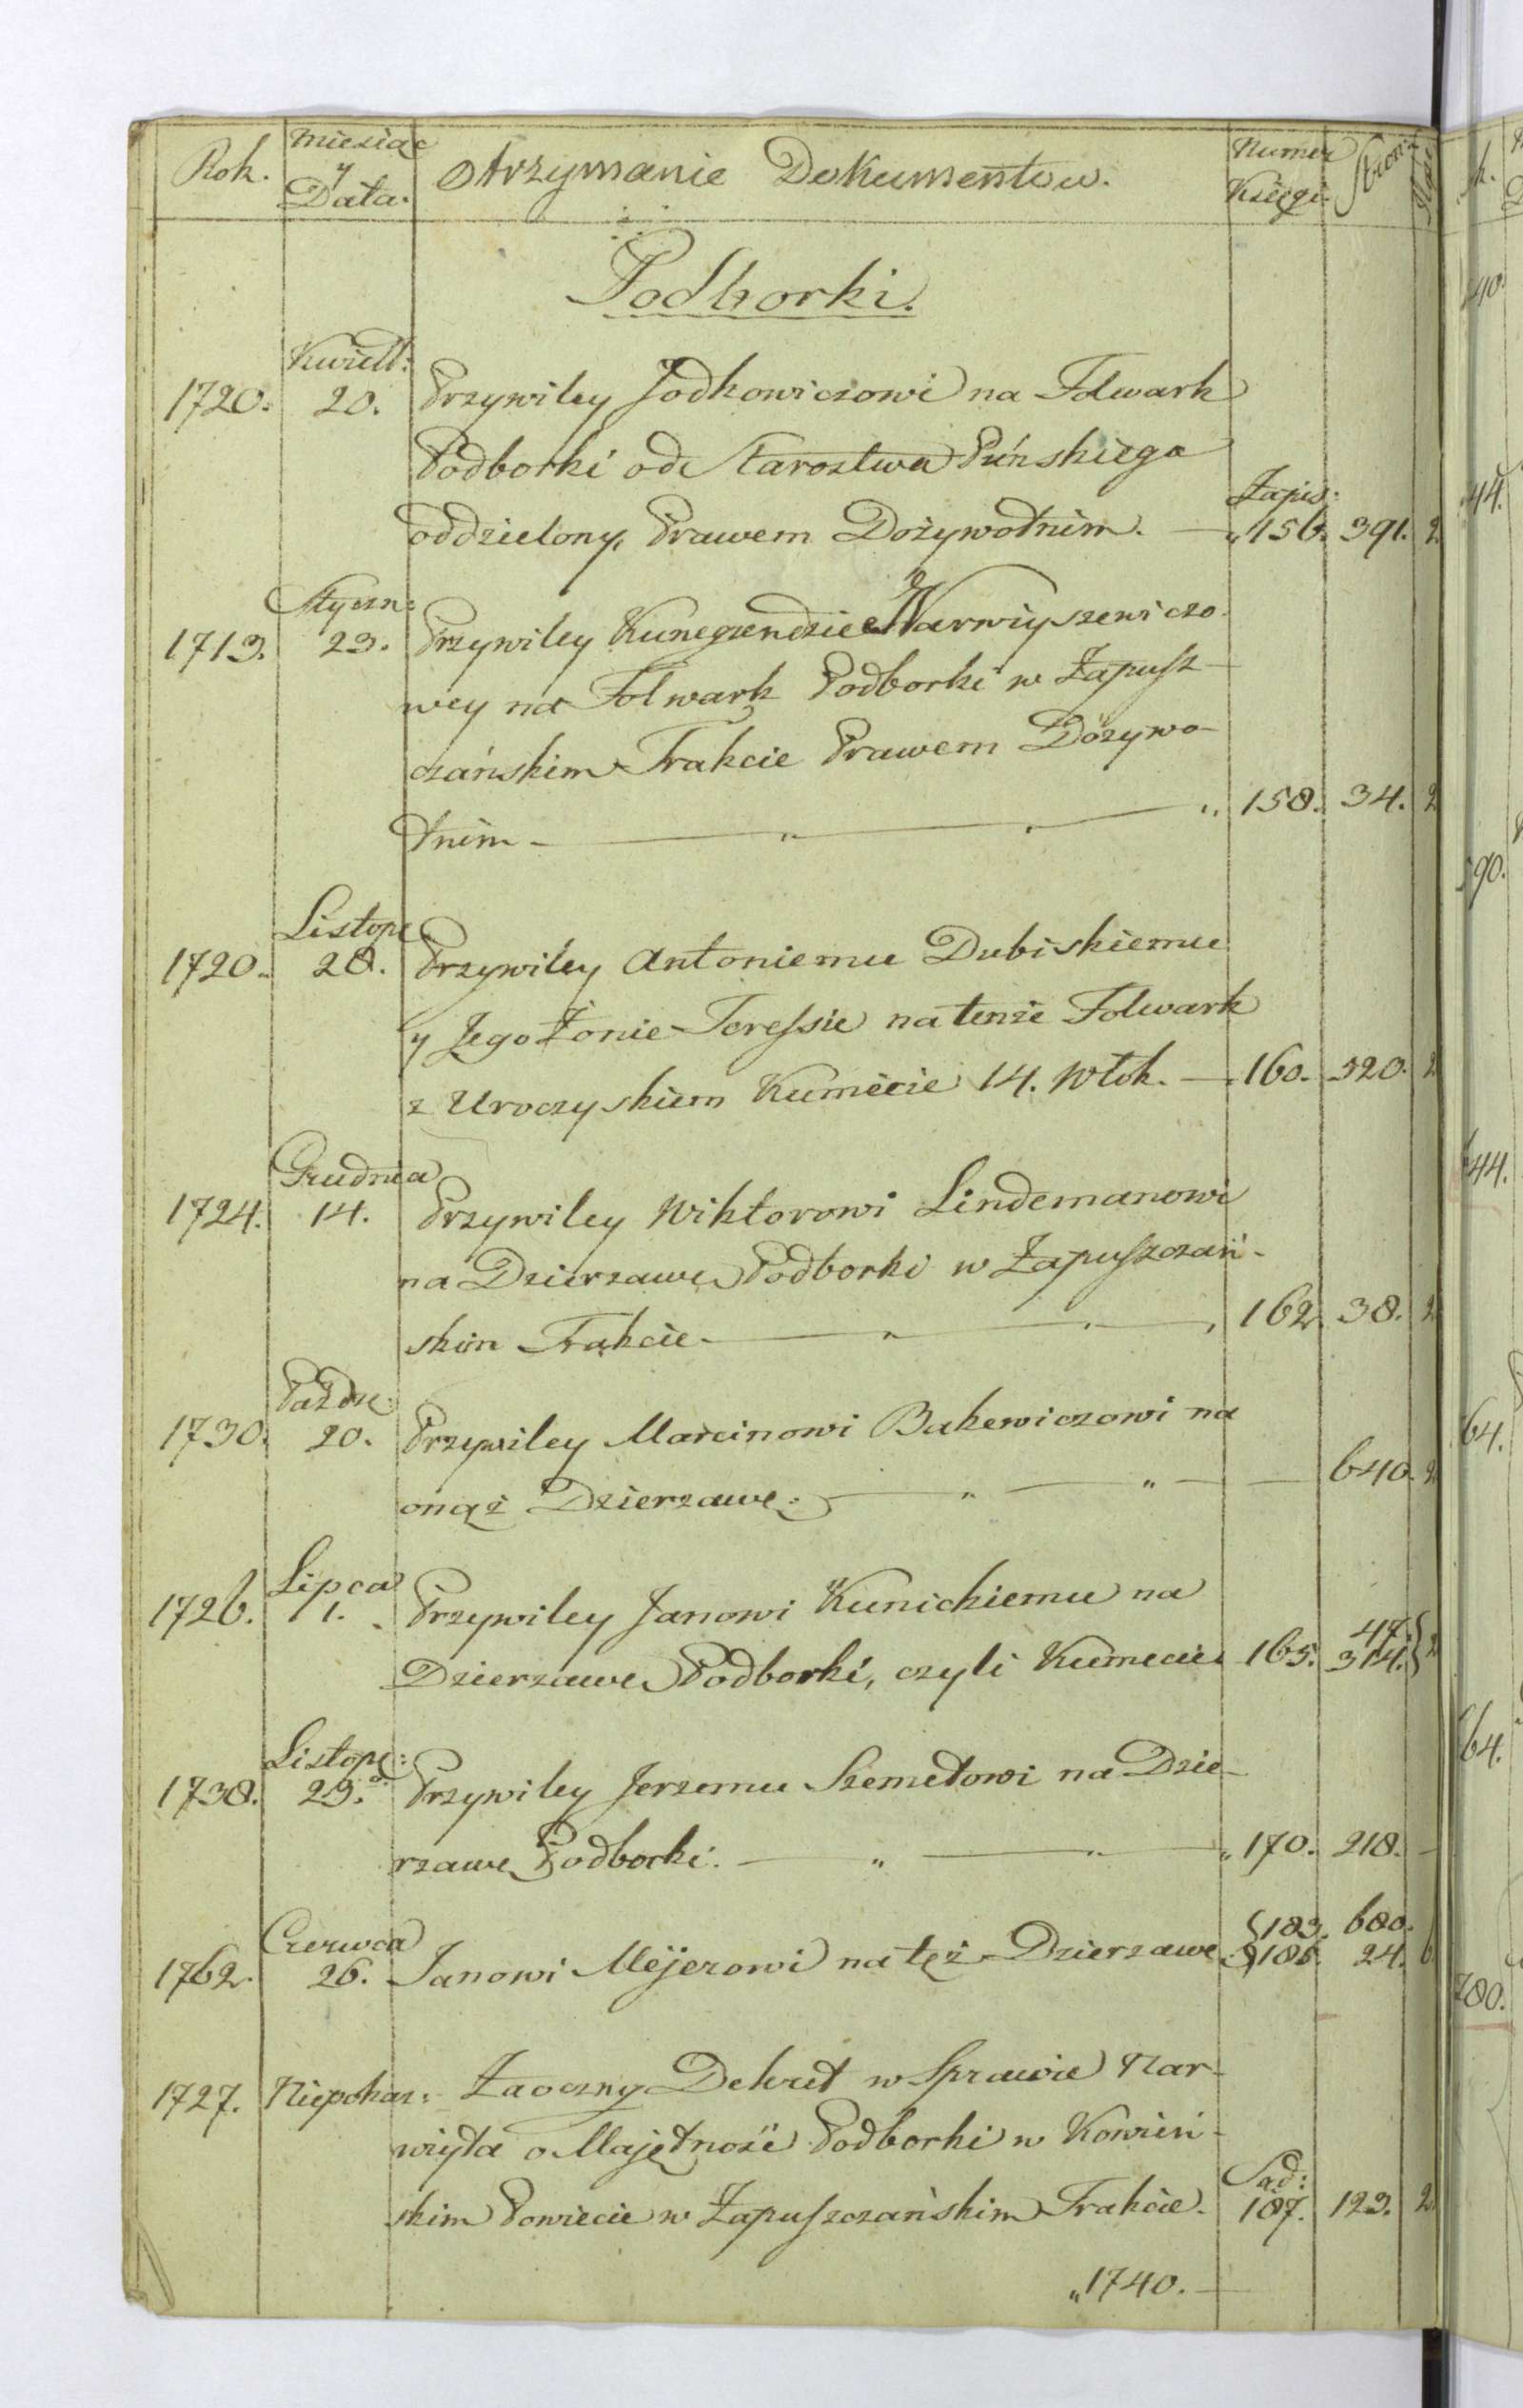 Rok. Miesiąc y Data. Otrzymanie Dokumentow. Numer Księgi. Stron:
Podborki.
Kwiett:
1720. 20. Przywiley Jodkowiczowi na Folwark
Podborki od Starostwa Puńskiego
Zapis:
oddzielony, Prawem Dożywotnim. — „ 156. 391. 2.
Styczn:
1713. 23. Przywiley Kunegzendzie Narwiyszewiczo-
wey na Folwark Podborki w Zapusz-
czańskim Trakcie Prawem Dożywo-
tnim — „ — „ — „ 158. 34. 2
Listop:
1720. 28. Przywiley Antoniemu Dubiskiemu
y Jego Żonie Teressie na tenże Folwark
z Uroczyskiem Kumiecie 14. Włok. — 160. 520. 2
Grudnia
1724. 14. Przywiley Wiktorowi Lindemanowi
na Dzierzawę Podborki w Zapuszczań-
skim Trakcie — „ — „ — 162. 38. 2
Paźdz:
1730. 20. Przywiley Marcinowi Bakewiczowi na
onąż Dzierzawę: — „ — „ — 640. 2
Lipca
1726. 1. Przywiley Janowi Kunickiemu na
47.
Dzierzawę Podborki, czyli Kumecie 165. 314. 2
Listop:
1738. 29. Przywiley Jerzemu Szemetowi na Dzie-
rzawę Podborki. — „ — „ — „ 170. 218. —
Czerwca 183. 680.
1762. 26. Janowi Mejerowi na tęż Dzierzawę 186. 24. 6.
1727. Niepokaz: Zaoczny Dekret w Sprawie Nar-
wiyta o Majętność Podborki w Kowień-
Sąd:
skim Powiecie w Zapuszczańskim Trakcie. 187. 123. 2.
„ 1740. —
40.
44.
590.
44.
64.
64.
780.